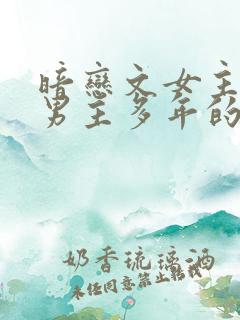 暗恋文女主
男主多年的
奶香琉璃酒
未经同意禁止转载